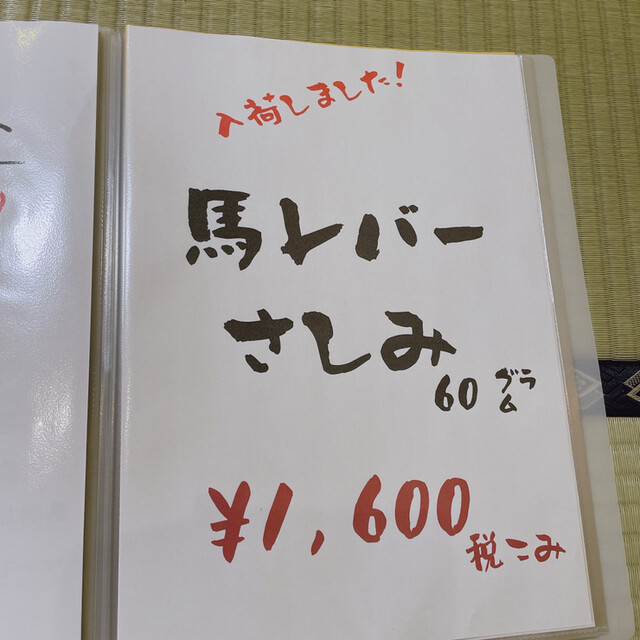 入荷しました!
馬レバー
さしみ
60グラム
¥1,600
税こみ